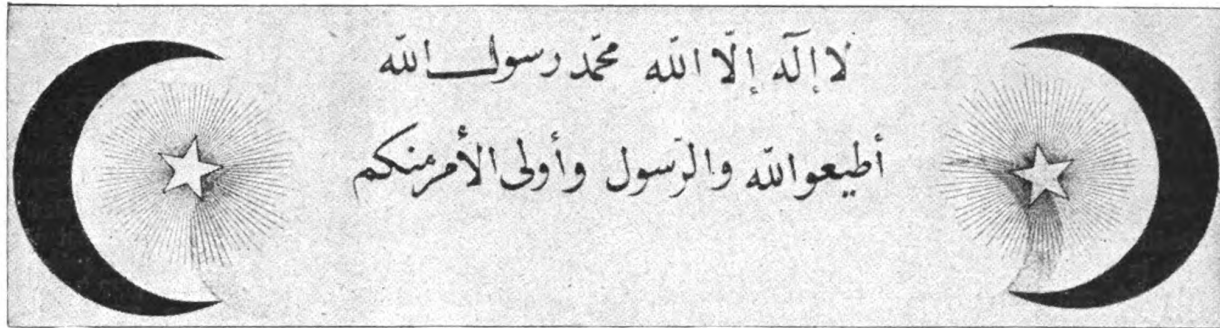 لا إله إلّا الله محمّد رسول الله
أطيعوا الله والرّسول وأولى الأمر منكم